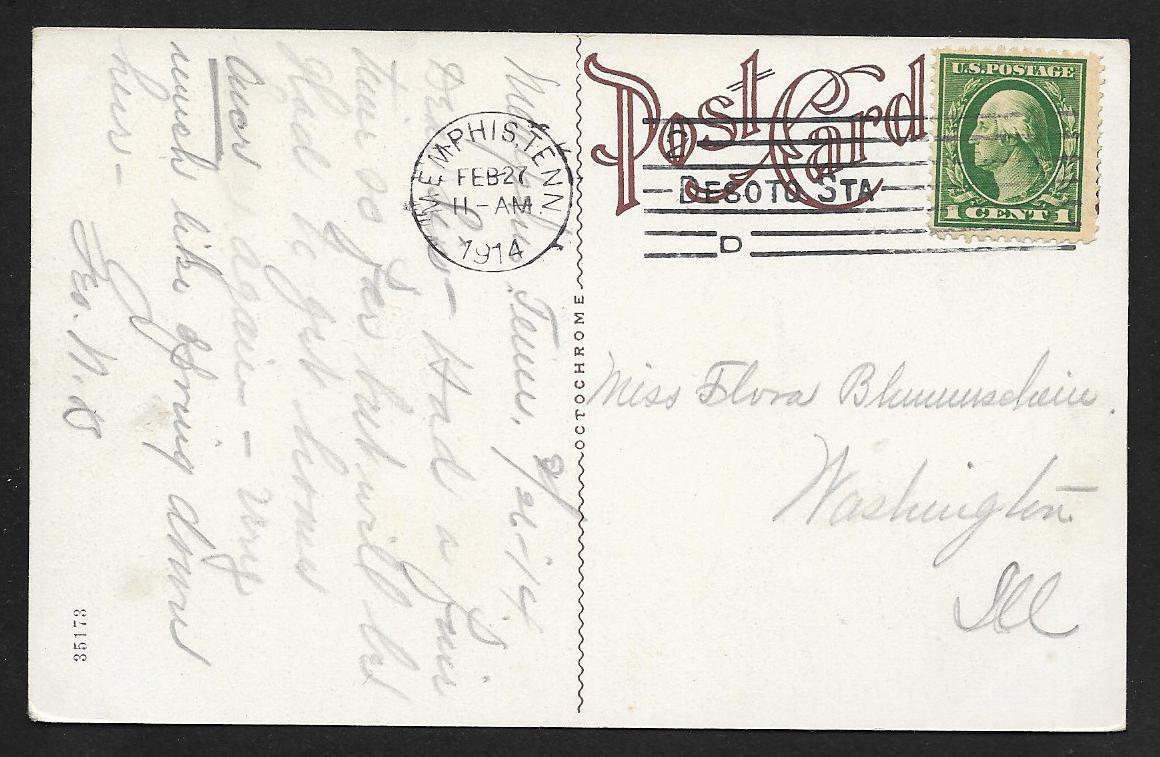 Post Card
U.S. POSTAGE
1 CENT 1
MEMPHIS, TENN.
FEB 27
11-AM
1914
D
DESOTO STA
D
OCTOCHROME
Miss Flora Blumenschein.
Washington
Ill
Memphis Tenn, 2/26-14
Had a fine
time so far but will be
glad to get home
once again - very
much like spring down
here -
Geo. N. B
35173